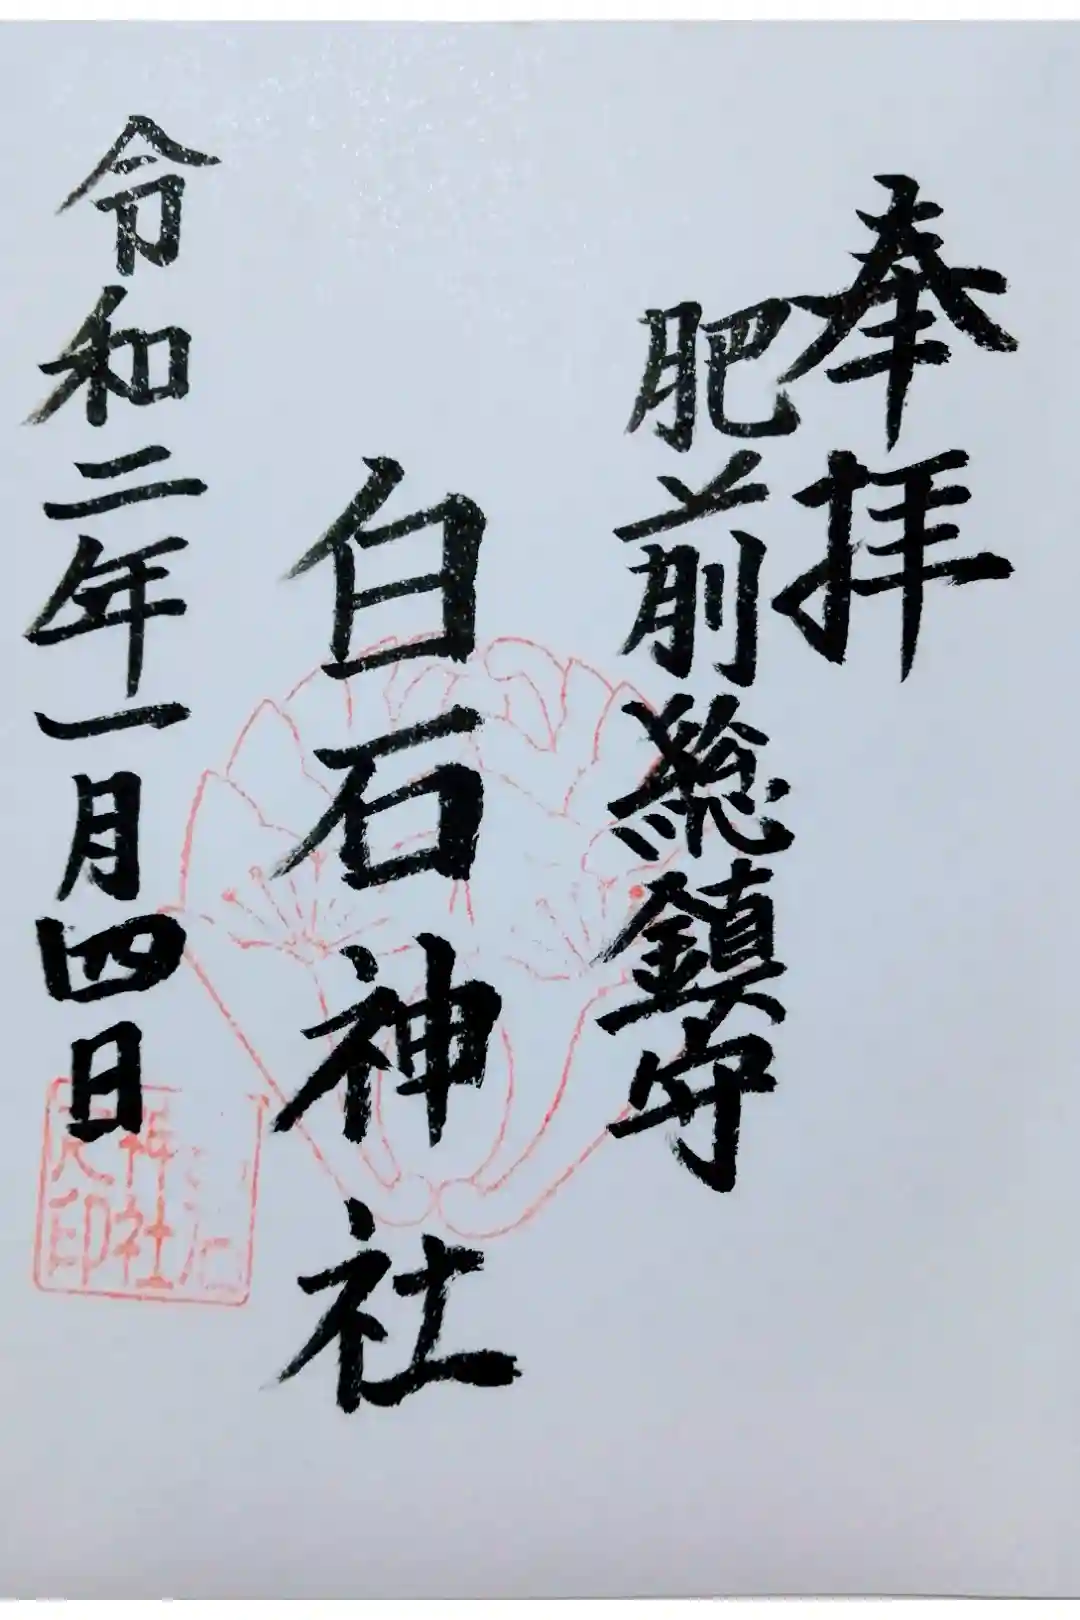 奉拝
肥前総鎮守
白石神社
令和二年一月四日
石
神社
印